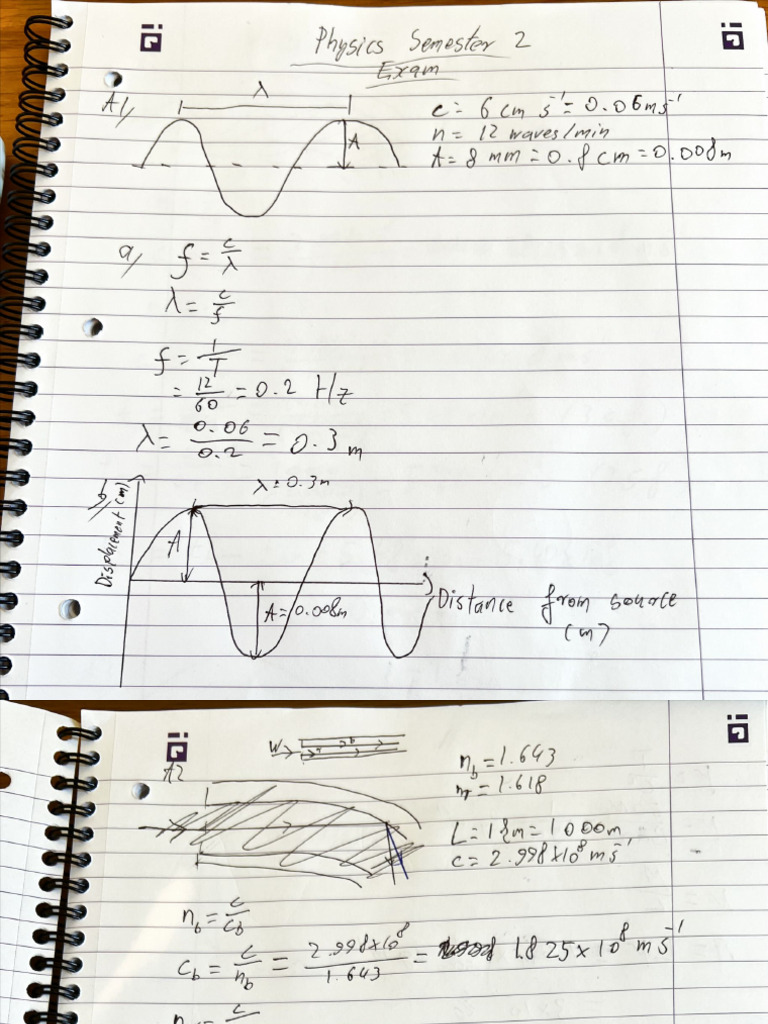 Physics Semester 2
Exam
A1/
λ
A
c = 6 cm s⁻¹ = 0.06 ms⁻¹
n = 12 waves/min
A = 8 mm = 0.8 cm = 0.008 m
a/ f = c/λ
λ = c/f
f = 1/T
= 12/60 = 0.2 Hz
λ = 0.06/0.2 = 0.3 m
b/
Displacement (m)
λ = 0.3m
A
A = 0.008m
Distance from source
(m)
A2
W
b
r
n_b = 1.643
n_r = 1.618
L = 1km = 1000m
c = 2.998×10⁸ ms⁻¹
n_b = c/c_b
c_b = c/n_b = 2.998×10⁸/1.643 = 1.825×10⁸ m s⁻¹